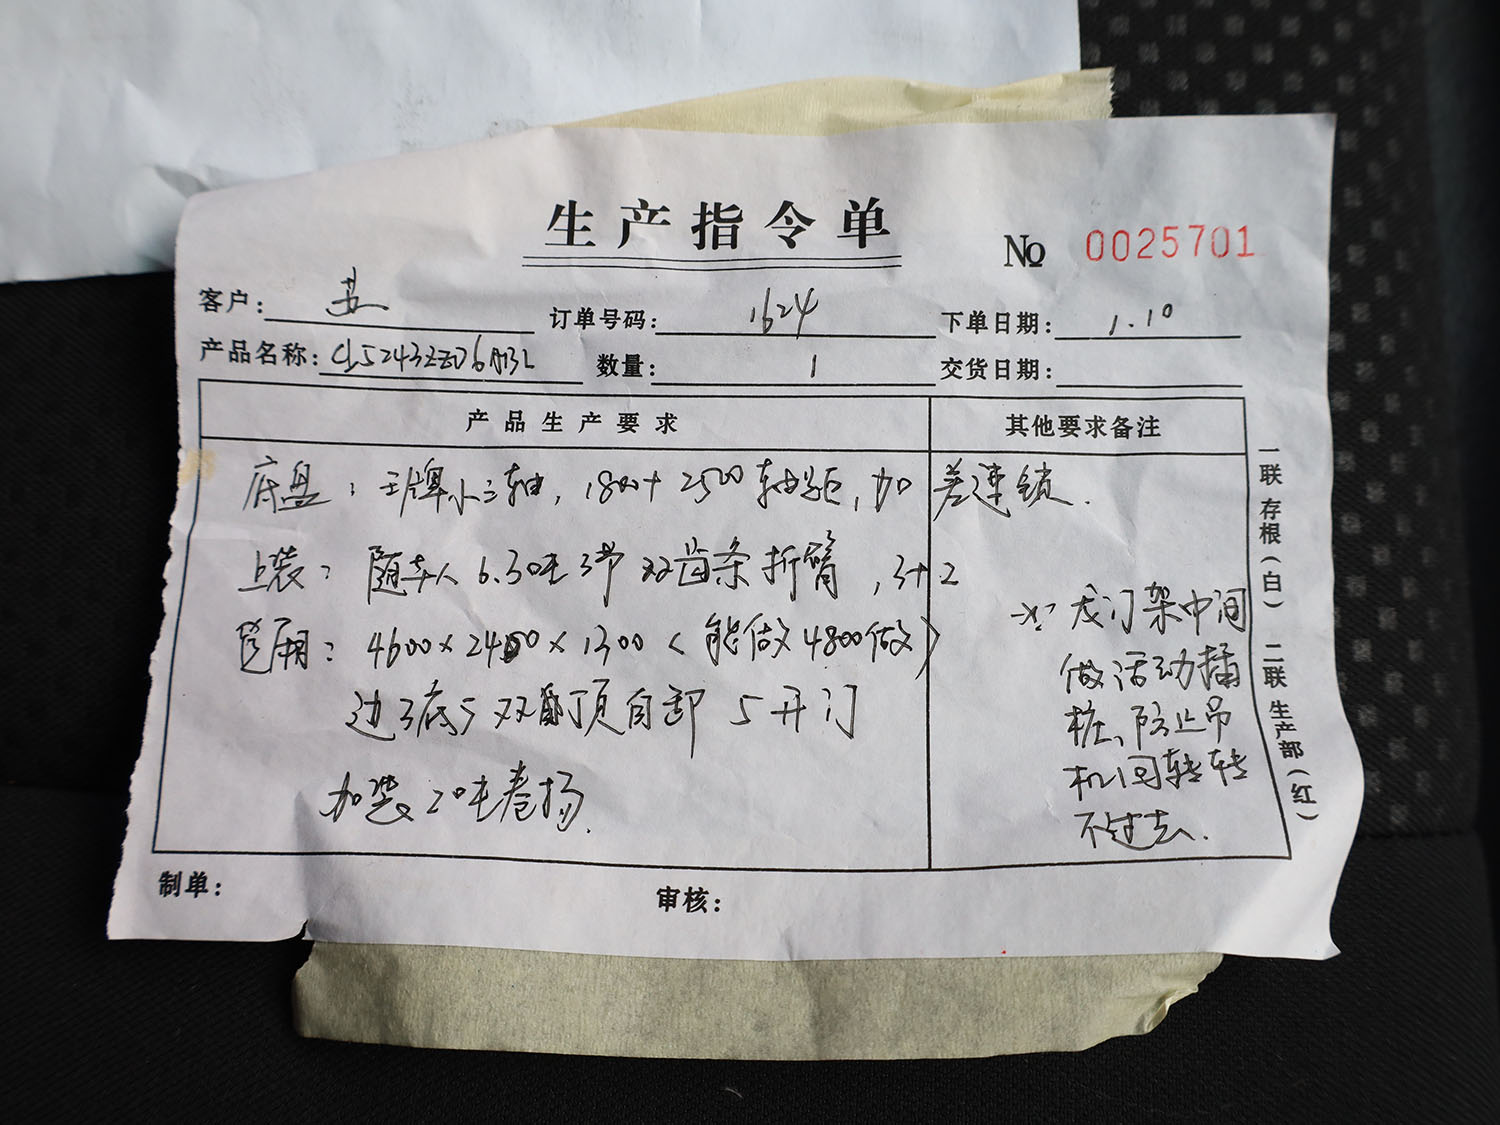 生产指令单
№ 0025701
客户： 苏 订单号码： 1624 下单日期： 1.10
产品名称： 数量： 1 交货日期：
产品生产要求 其他要求备注
底盘：王牌小三轴，1800+2500轴距，加差速锁.
上装：随车人6.30吨3节双齿条折臂，3+2
货厢：4600×2400×1300（能做4800做）
双顶自卸 5开门
加装20吨卷扬.
龙门架中间
做活动插
桩、防止吊
机回转转
不过去.
制单： 审核：
一联存根（白） 二联生产部（红）